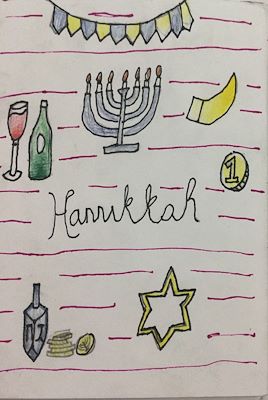 1
Hanukkah